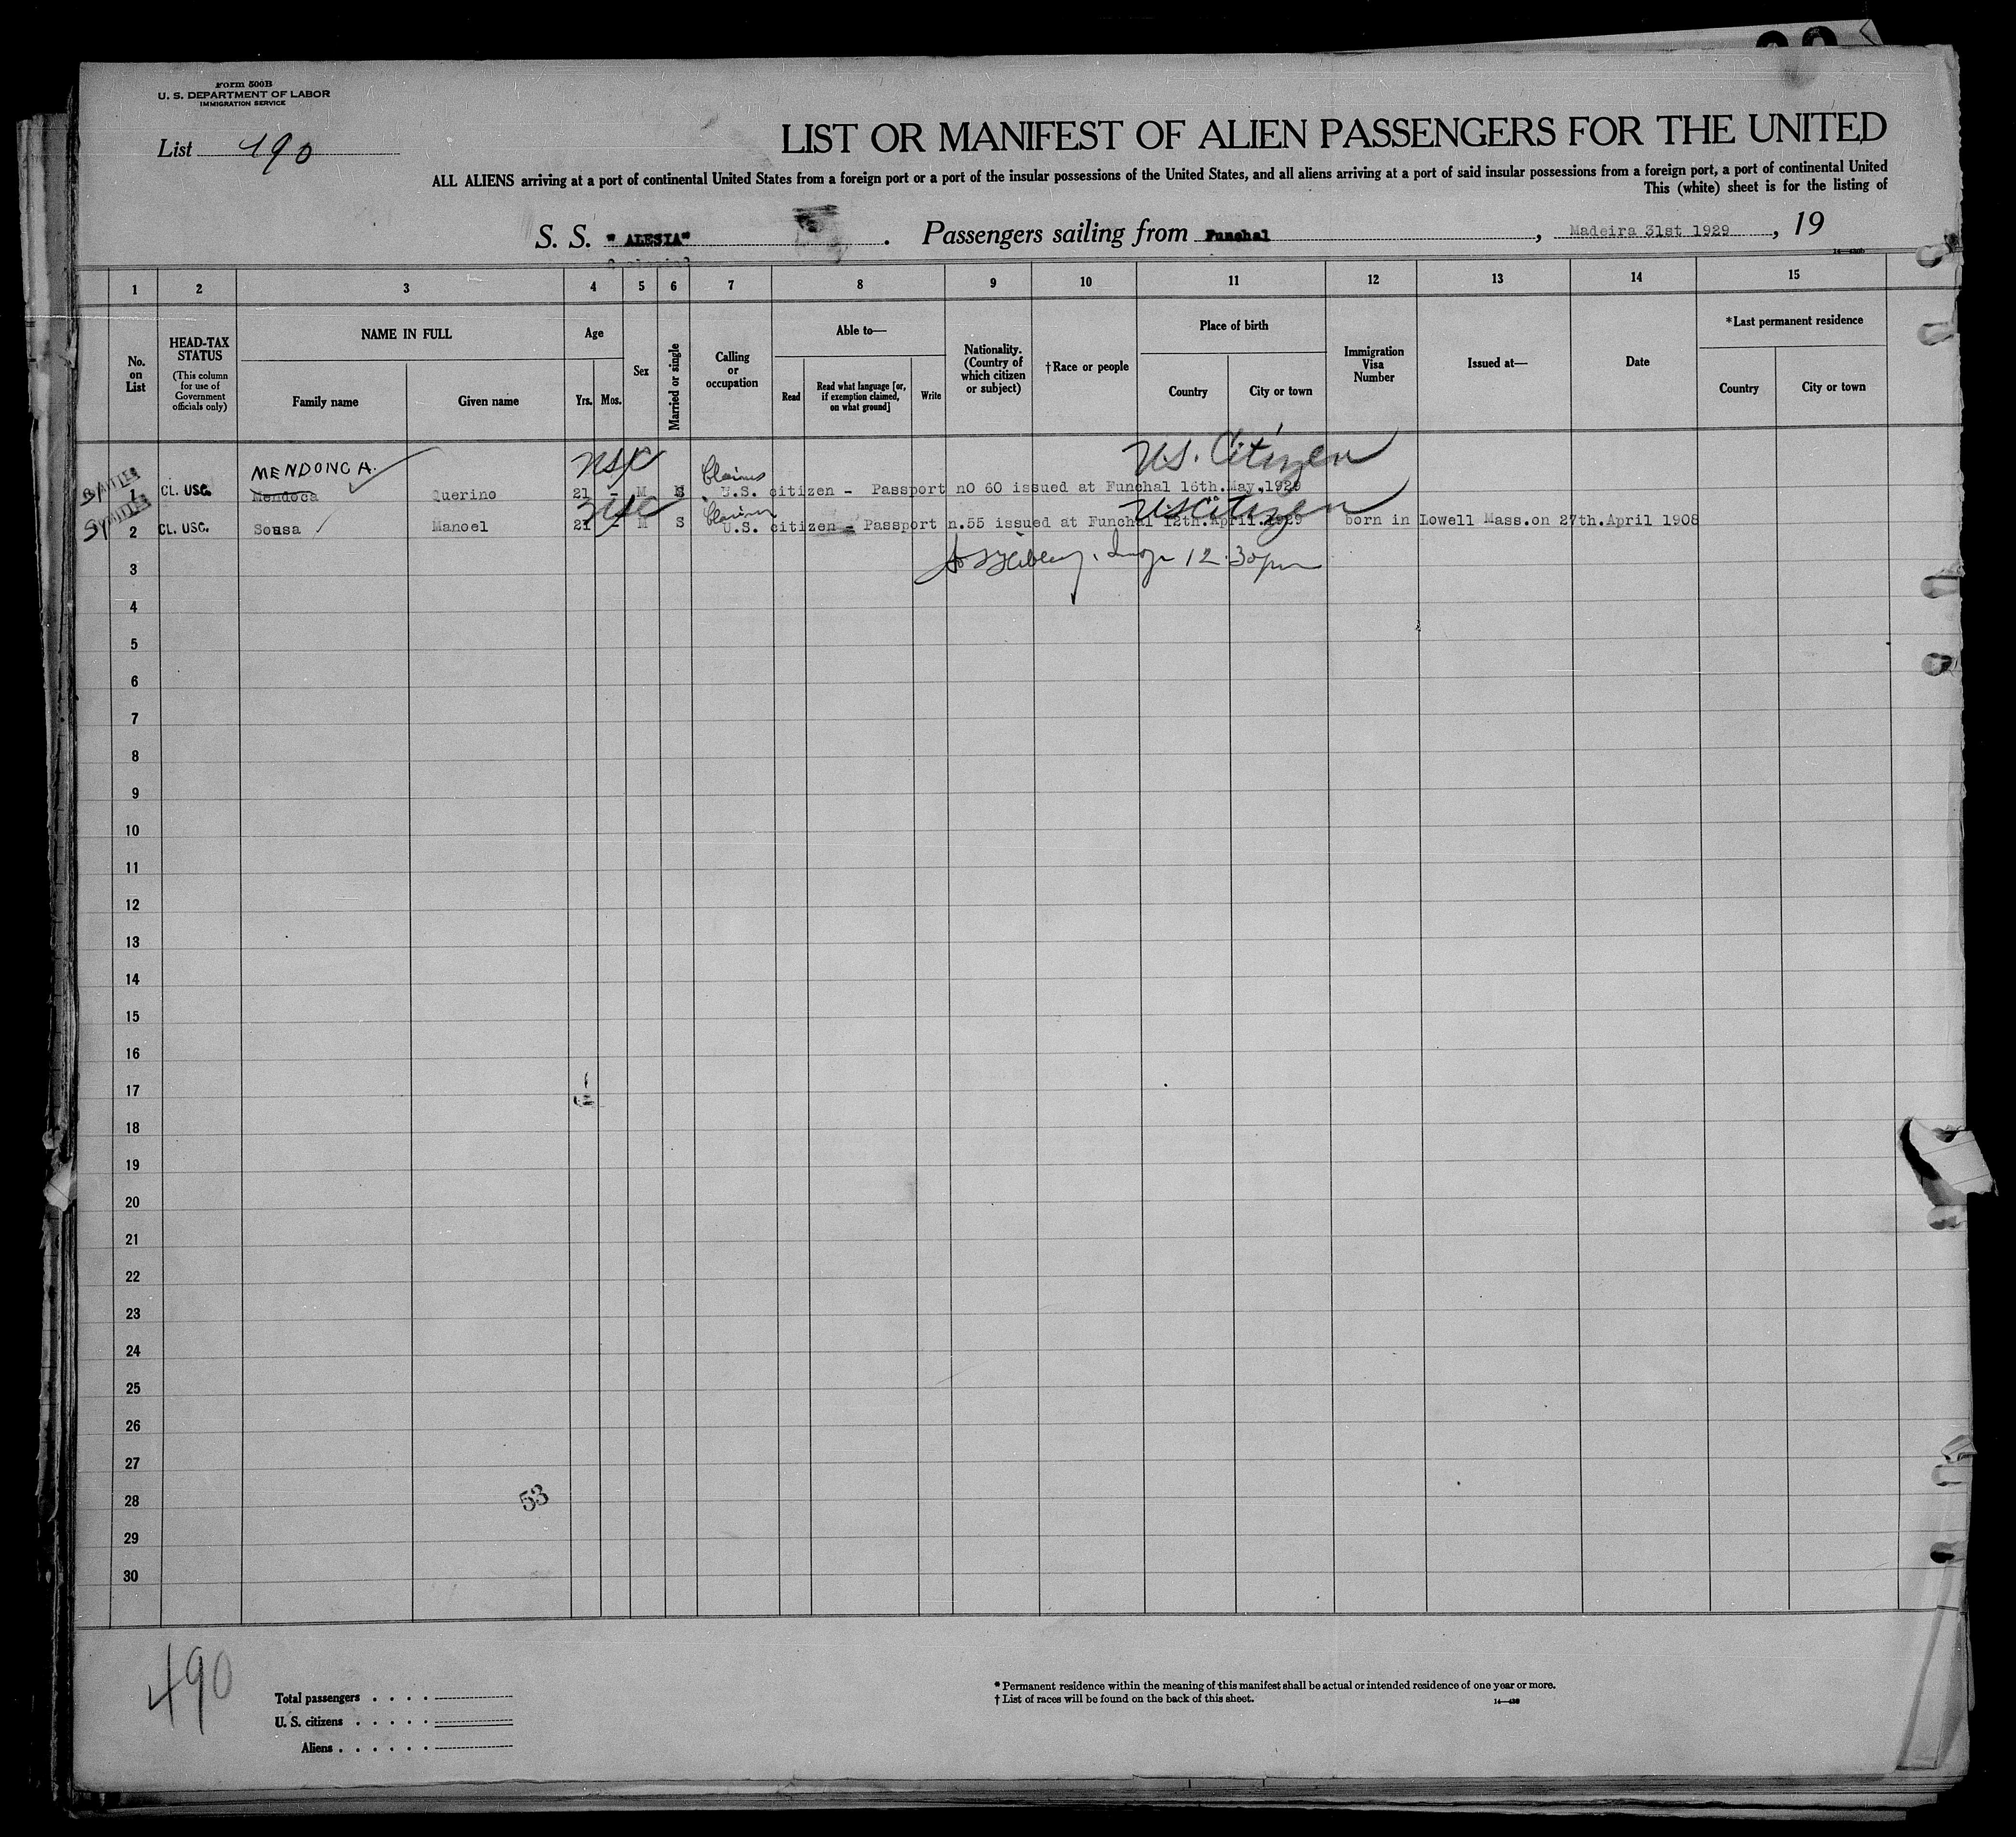 Form 500B
U. S. DEPARTMENT OF LABOR
IMMIGRATION SERVICE
List 490
LIST OR MANIFEST OF ALIEN PASSENGERS FOR THE UNITED
ALL ALIENS arriving at a port of continental United States from a foreign port or a port of the insular possessions of the United States, and all aliens arriving at a port of said insular possessions from a foreign port, a port of continental United
This (white) sheet is for the listing of
S. S. "ALESIA". Passengers sailing from Funchal, Madeira 31st 1929, 19
1 2 3 4 5 6 7 8 9 10 11 12 13 14 15
No. on List
HEAD-TAX STATUS
(This column for use of Government officials only)
NAME IN FULL
Family name
Given name
Age
Yrs. Mos.
Sex
Married or single
Calling or occupation
Able to—
Read
Read what language [or, if exemption claimed, on what ground]
Write
Nationality. (Country of which citizen or subject)
†Race or people
Place of birth
Country
City or town
Immigration Visa Number
Issued at—
Date
*Last permanent residence
Country
City or town
MENDONCA. NSC Claims U.S. Citizen
1 CL. USC. Mendoca Querino 21 - M S U.S. citizen - Passport nO 60 issued at Funchal 16th.May.1929
Claims US Citizen
2 CL. USC. Sousa Manoel 21 - M S U.S. citizen - Passport n.55 issued at Funchal 12th.April.1929 born in Lowell Mass.on 27th.April 1908
3 12.30pm
4
5
6
7
8
9
10
11
12
13
14
15
16
17
18
19
20
21
22
23
24
25
26
27
28
53
29
30
490
Total passengers . . . .
U. S. citizens . . . . .
Aliens . . . . . .
* Permanent residence within the meaning of this manifest shall be actual or intended residence of one year or more.
† List of races will be found on the back of this sheet.